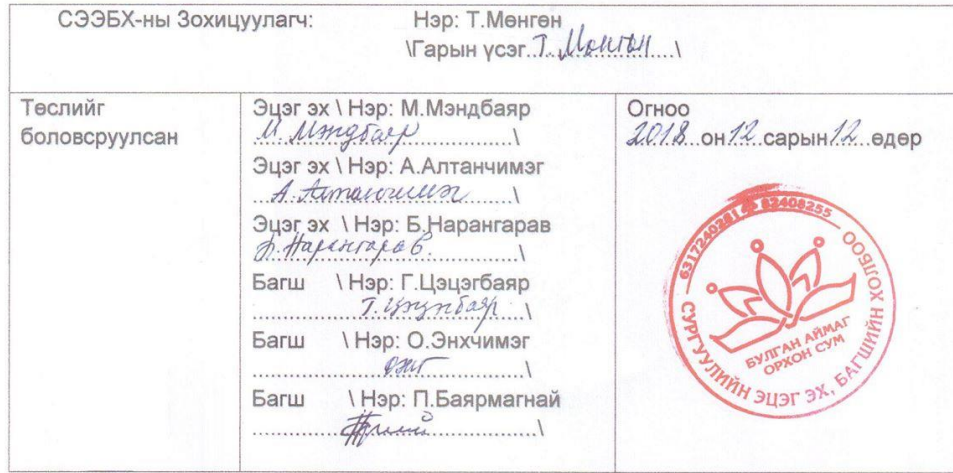 СЭЭБХ-ны Зохицуулагч: Нэр: Т.Мөнгөн
\Гарын үсэг Т. Мөнгөн \
Төслийг
боловсруулсан
Эцэг эх \ Нэр: М.Мэндбаяр
М. Мэндбаяр \
Эцэг эх \ Нэр: А.Алтанчимэг
А. Алтанчимэг \
Эцэг эх \ Нэр: Б.Нарангарав
Б. Нарангарав. \
Багш \ Нэр: Г.Цэцэгбаяр
Г. Цэцэгбаяр \
Багш \ Нэр: О.Энхчимэг
\
Багш \ Нэр: П.Баярмагнай
\
Огноо
2018 он 12 сарын 12 өдөр
82408255
СУРГУУЛИЙН ЭЦЭГ ЭХ, БАГШИЙН ХОЛБОО
БУЛГАН АЙМАГ
ОРХОН СУМ